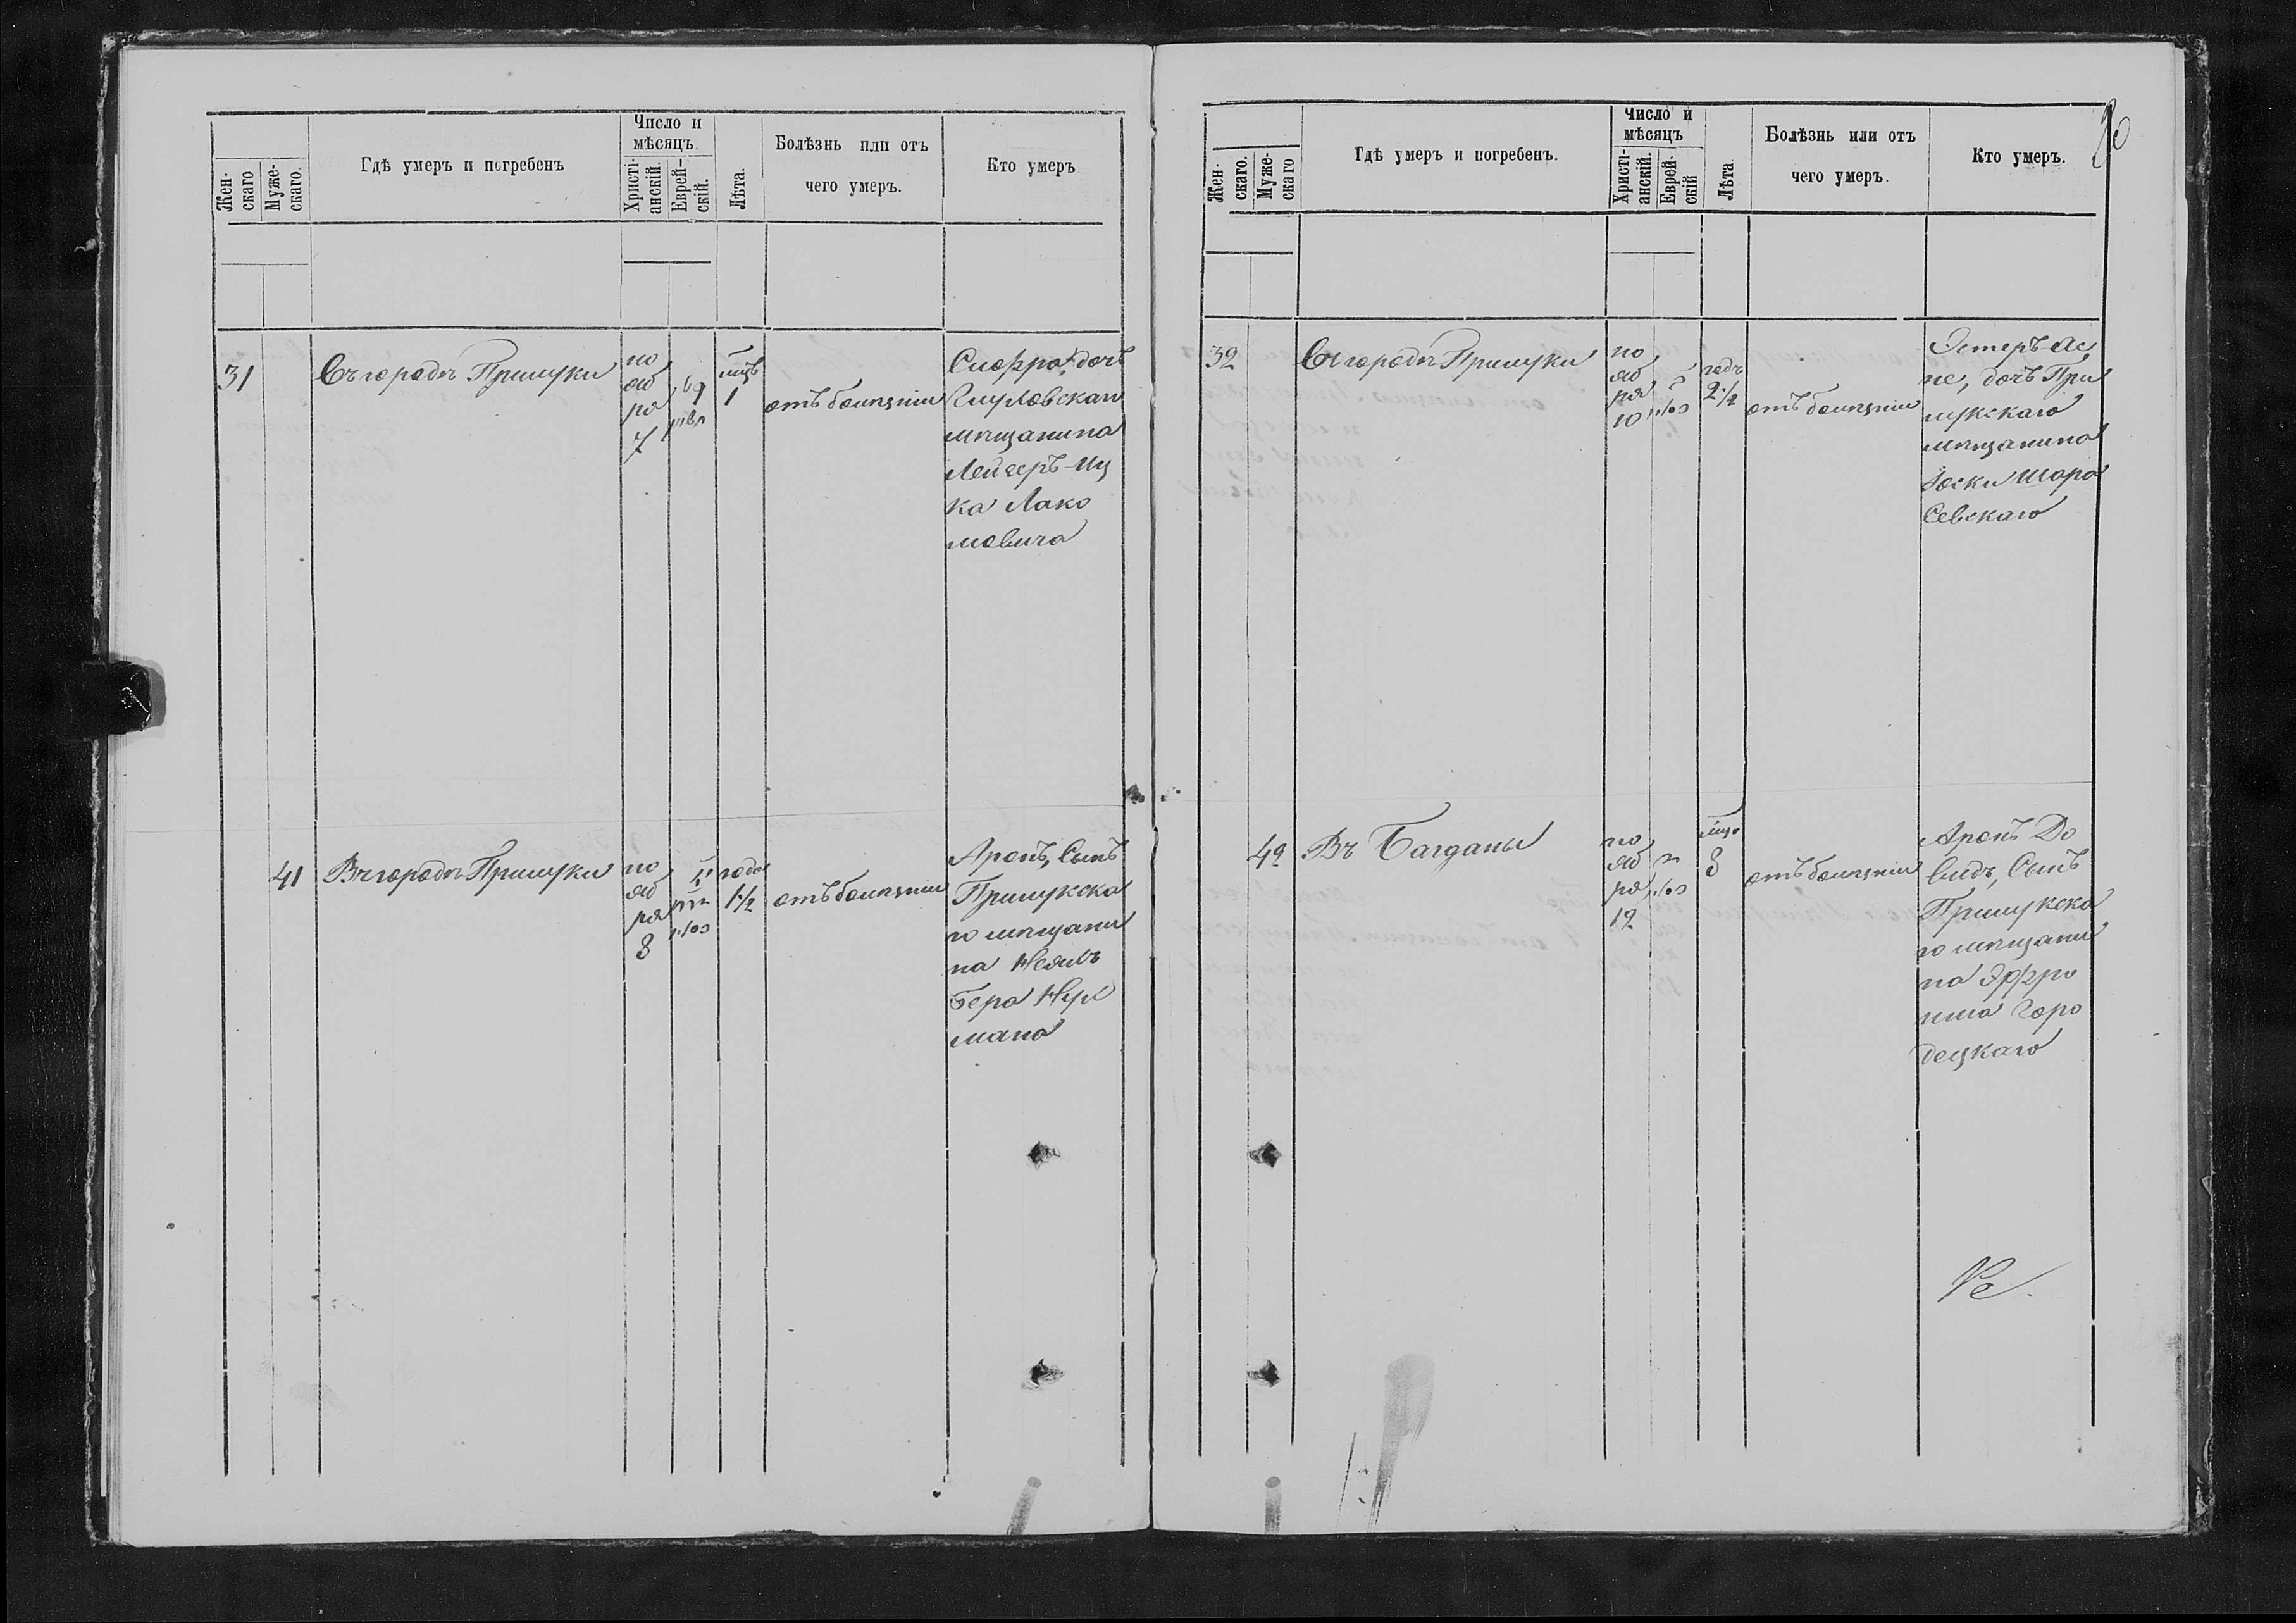 Жен-
скаго
Муже-
скаго.
Гдѣ умеръ и погребенъ
Число и
мѣсяцъ.
Христі-
анскій.
Еврей-
скій.
Лѣта.
Болѣзнь или отъ
чего умеръ.
Кто умеръ
31
Въ городѣ Прилуки
но
яб
ря
7
мцъ
1
отъ болѣзни
дочь
мѣщанина
Лейзеръ-Иц
ка Лахо
мовича
41
Въ городѣ Прилуки
но
яб
ря
8
כסלו
года
1½
отъ болѣзни
Аронъ, Сынъ
Прилукска
го мѣщани
на
Бера
мана
Жен-
скаго.
Муже-
скаго
Гдѣ умеръ и погребенъ.
Число и
мѣсяцъ
Христі-
анскій.
Еврей-
скій
Лѣта
Болѣзнь или отъ
чего умеръ.
Кто умеръ.
32
Въ городѣ Прилуки
но
яб
ря
10
כסלו
годъ
2½
отъ болѣзни
Эстеръ Ас
не, дочь При
лукскаго
мѣщанина
Іоски Шара
севскаго
42
Въ Богданы
но
яб
ря
12
כסלו
мцо
8
отъ болѣзни
Аронъ До
видъ, Сынъ
Прилукска
го мѣщани
на Эфро
има Горо
децкаго